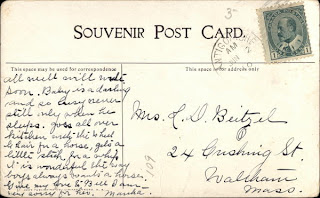 3
SOUVENIR POST CARD.
This space may be used for correspondence
This space is for address only
all well will write
soon. Baby is a darling
and so busy never
still only when he
sleeps. goes all over
kitchen with the
chair for a horse, gets a
little stick for a whip
it is wonderful the way
boys always want a horse.
Give my love to Bell I am
very sorry for her. Martha.
Mrs. L. D. Beitzel
24 Cushing St.
Waltham
Mass.
109
AM